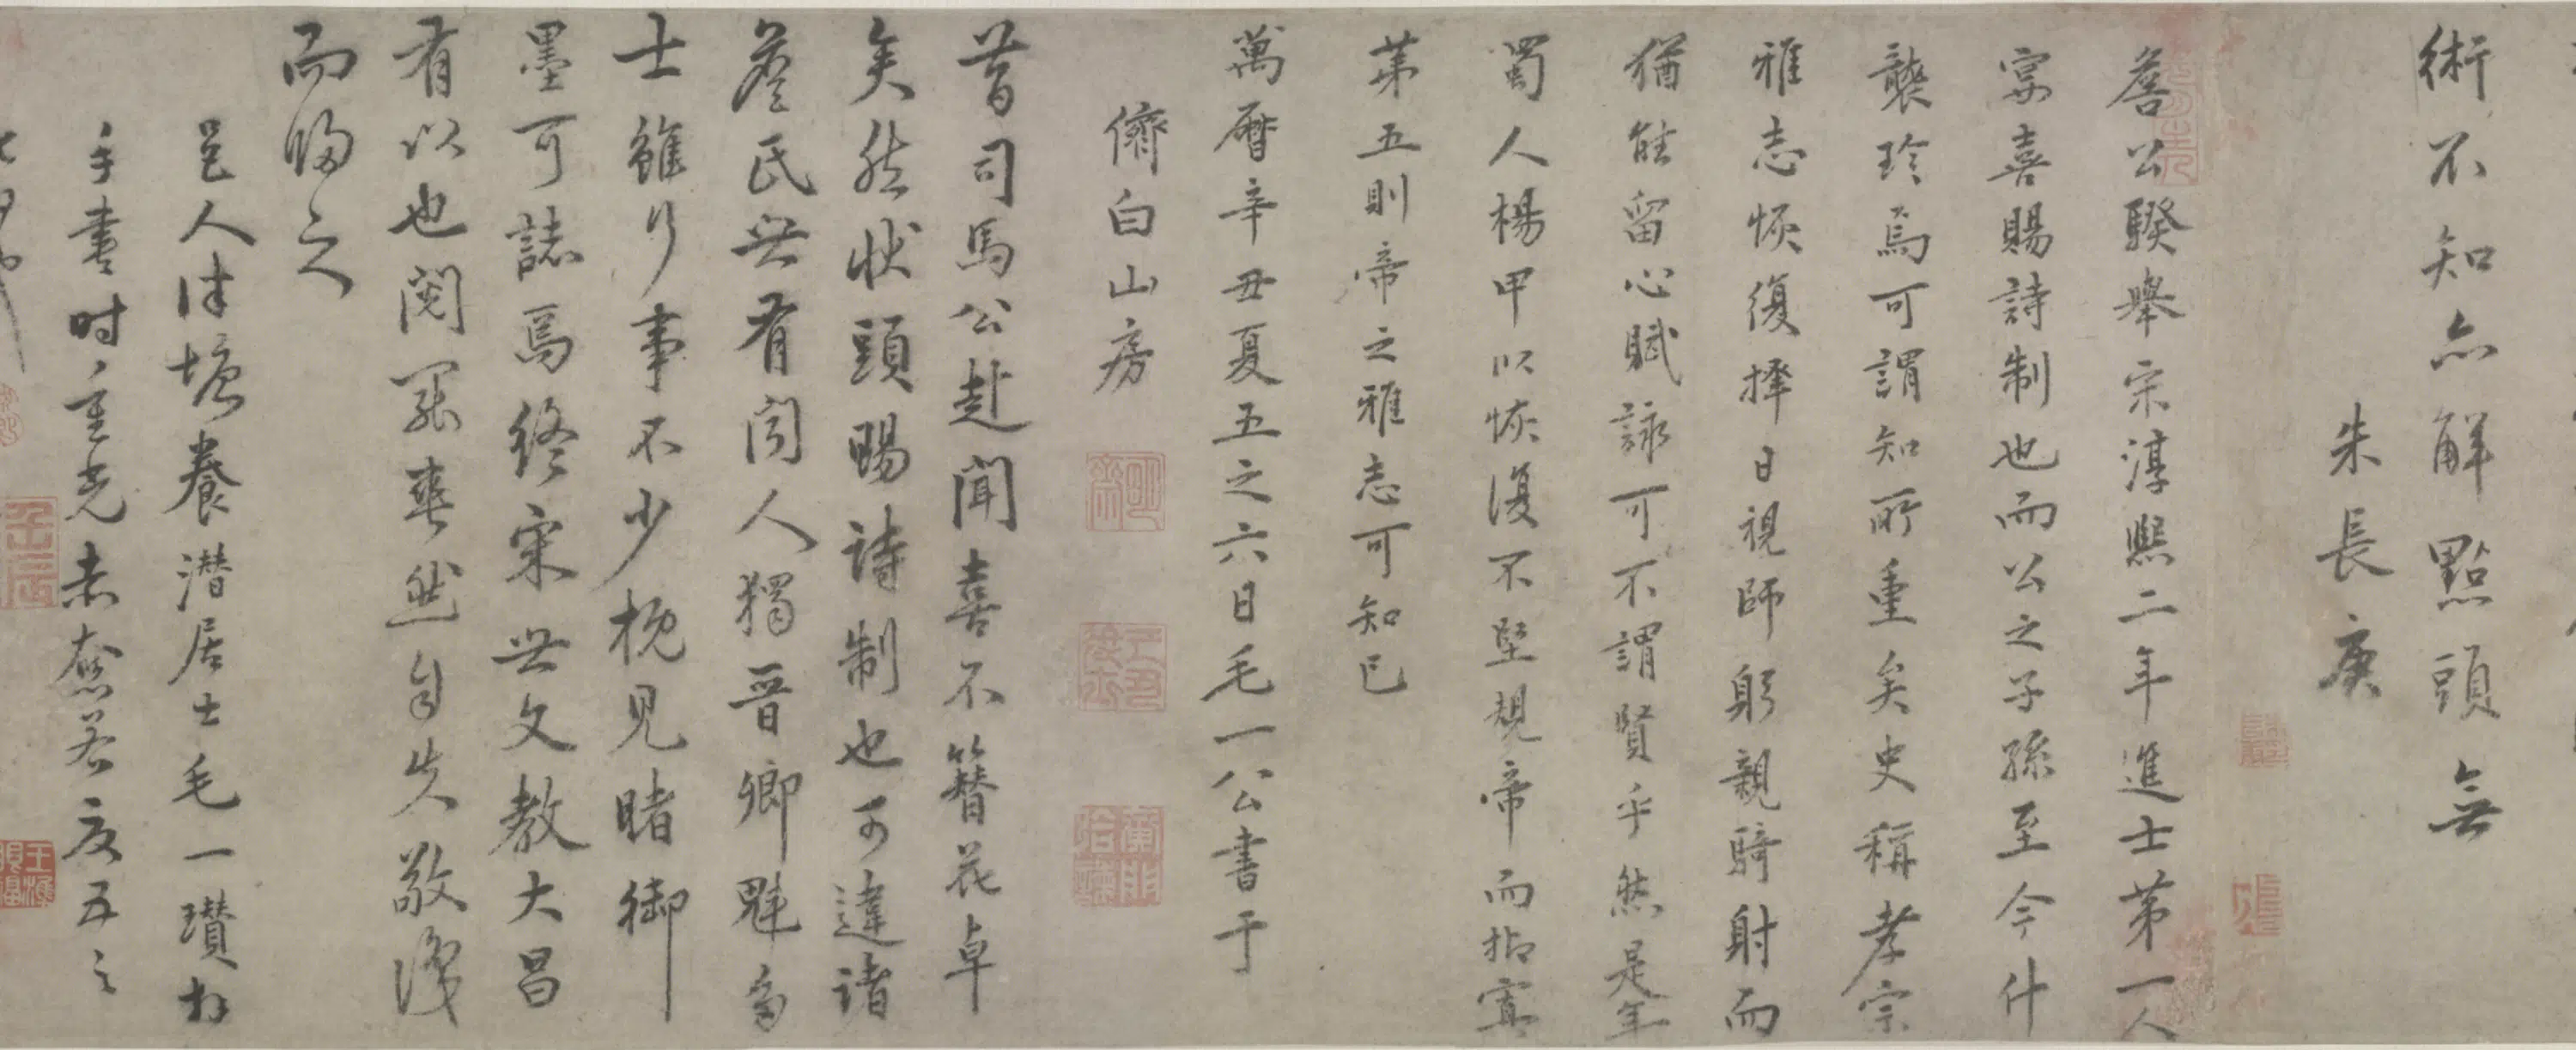 術不知亦解點頭無
朱長庚
詹公騤舉宗淳熙二年進士第一人
寔喜賜詩制也而公之子孫至今什
襲珍焉可謂知所重矣史稱孝宗
雅志恢復擇日視師躬親騎射而
猶能留心賦詠可不謂賢乎然是年
蜀人楊甲以恢復不堅規帝而抬寘
第五則帝之雅志可知已
萬曆辛丑夏五之六日毛一公書于
儕白山房
昔司馬公赴聞喜不簪花卓
矣然狀頭賜詩制也可違諸
詹氏世有聞人獨晉卿魁多
士雖行事不少概見睹御
墨可誌焉終宋世文教大昌
有以也閱罷爽然自失敬識
而歸之
邑人洋塘養潛居士毛一瓚拜
手書時重光赤奮若夏五之